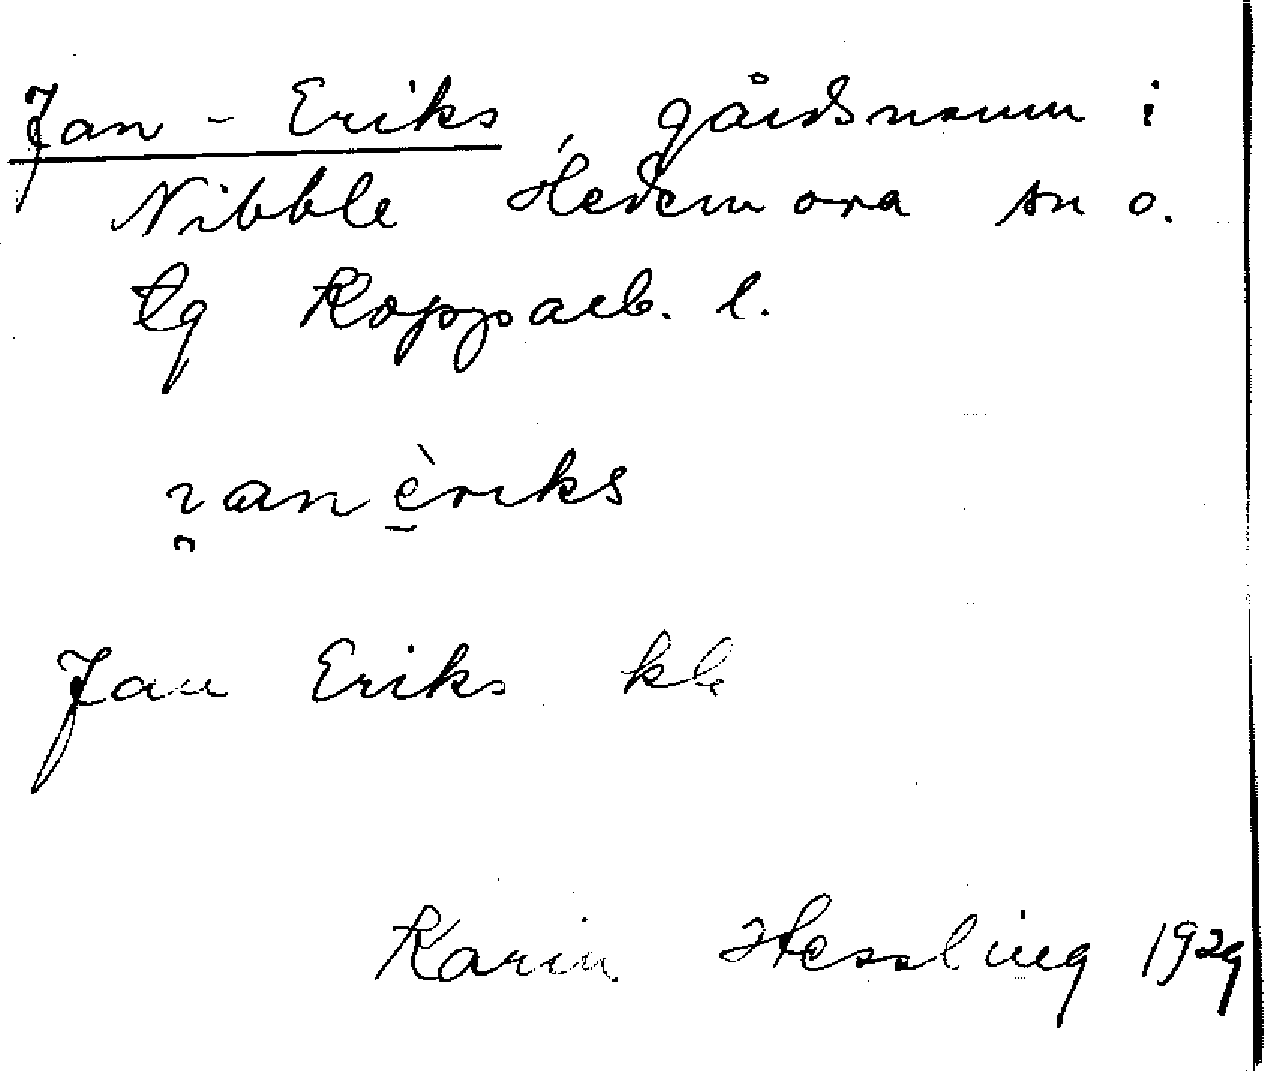 Jan-Eriks, gårdsnamn i
Nibble Hedemora sn o.
tg Kopparb. l.
ɿan èriks
Jan Eriks kb
Karin Hessling 1929